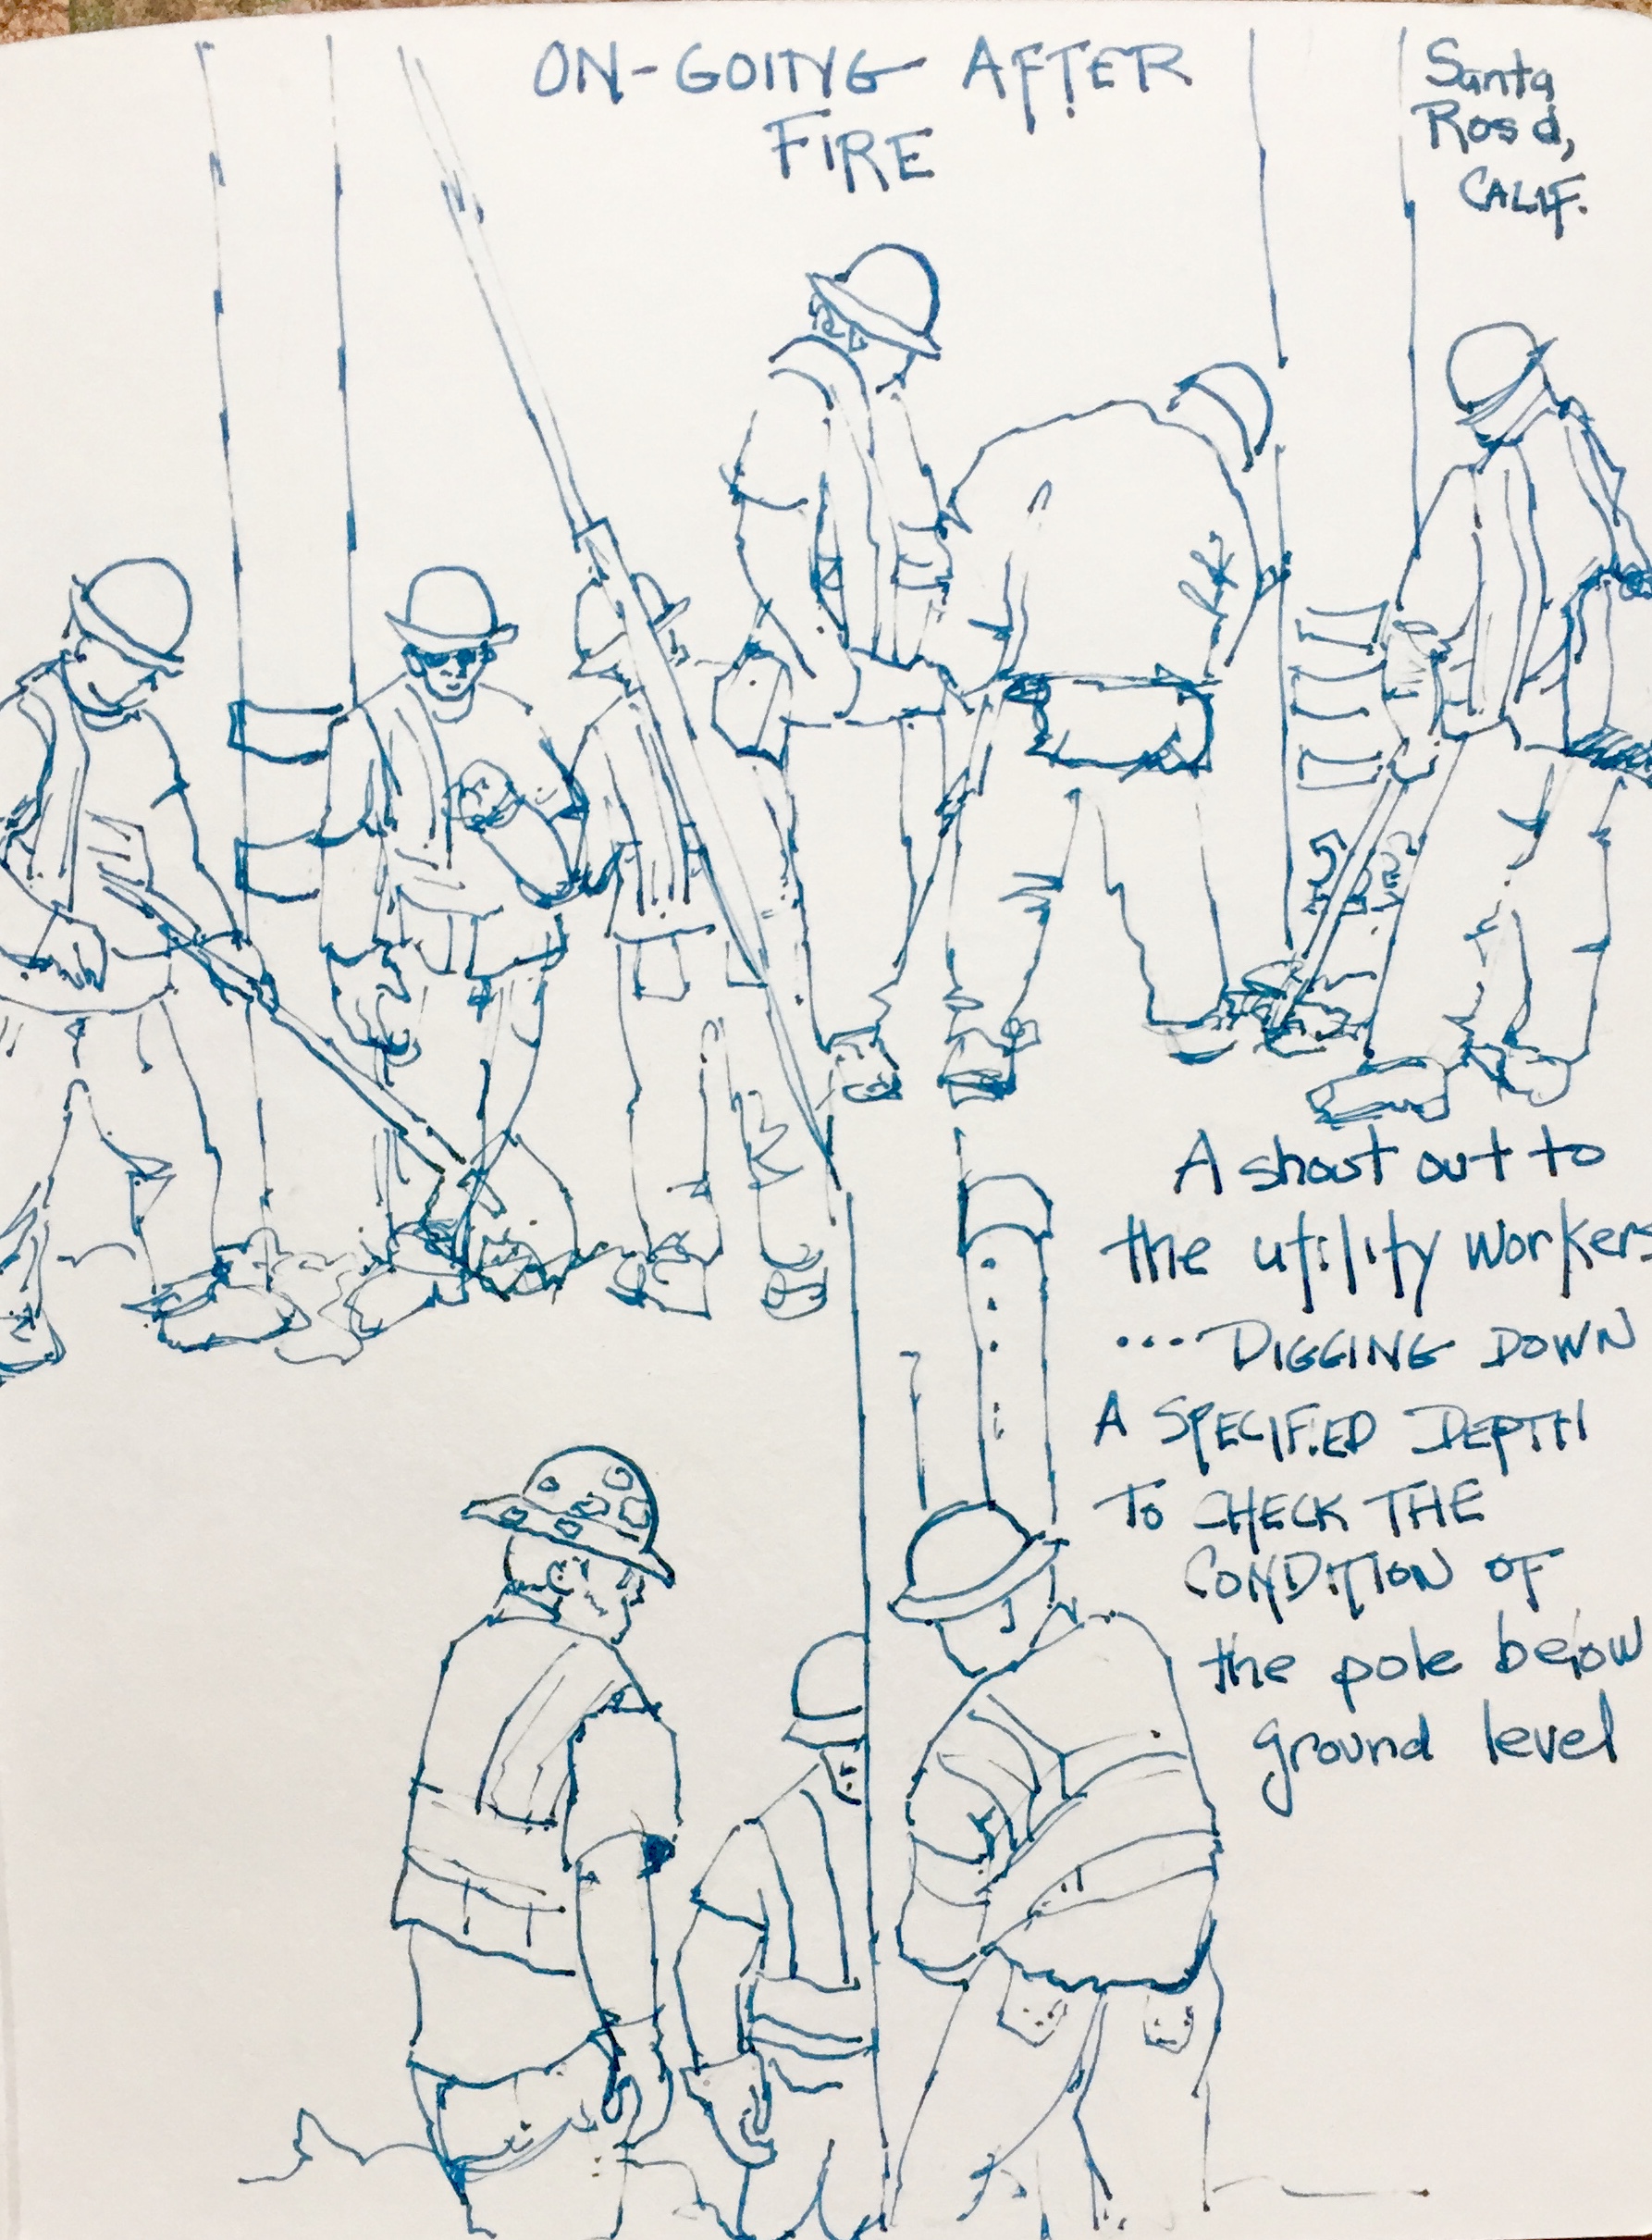 ON-GOING AFTER
FIRE
Santa
Rosa,
CALIF.
A shout out to
the utility workers
....DIGGING DOWN
A SPECIFIED DEPTH
TO CHECK THE
CONDITION OF
the pole below
ground level